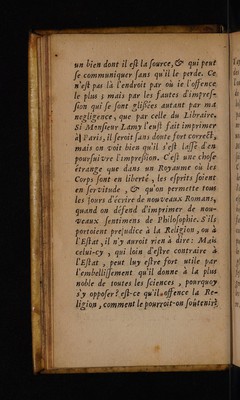 un bien dont il est la source, & qui peut
se communiquer sans qu'il le perde. Ce
n'est pas là l'endroit par où ie l'offence
le plus ; mais par les fautes d'impres-
sion qui se sont glissées autant par ma
negligence, que par celle du Libraire.
Si Monsieur Lamy l'eust fait imprimer
à Paris, il seroit sans doute fort correct,
mais on voit bien qu'il s'est lassé d'en
poursuivre l'impression. C'est une chose
étrange que dans un Royaume où les
Corps sont en liberté, les esprits soient
en servitude, & qu'on permette tous
les jours d'écrire de nouveaux Romans,
quand on défend d'imprimer de nou-
veaux sentimens de Philosophie. S'ils
portoient prejudice à la Religion, ou à
l'Estat, il n'y auroit rien à dire : Mais
celui-cy, qui loin d'estre contraire à
l'Estat, peut luy estre fort utile par
l'embellissement qu'il donne à la plus
noble de toutes les sciences, pourquoy
s'y opposer ? est-ce qu'il offence la Re-
ligion, comment le pourroit-on soûtenir